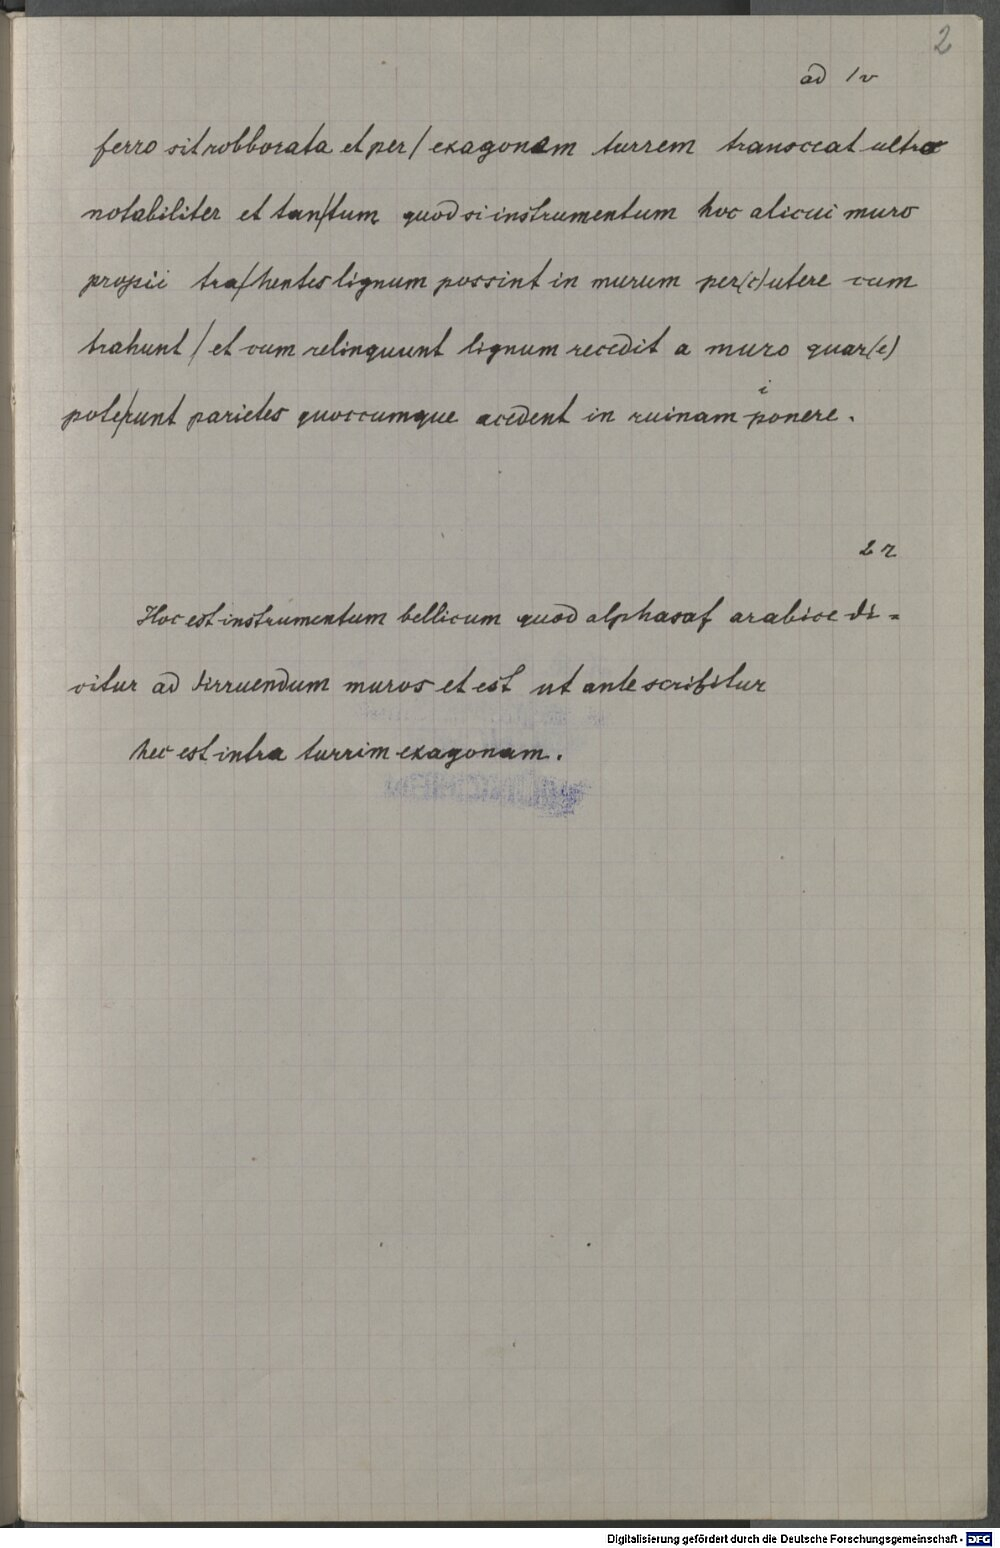 2
ad 1v
ferro sit robborata et per/ exagonam turrem transceat ultra
notabiliter et tan/tum quod si instrumentum hoc alicui muro
propii tra/hentes lignum possint in murum per(c)utere cum
trahunt / et cum relinquunt lignum recedit a muro quar(e)
pote/runt parietes quoccumque acedent in ruinam i ponere.
2r
Hoc est instrumentum bellicum quod alphasaf arabice di=
citur ad dirruendum muros et est ut ante scribitur
hec est intra turrim exagonam.
Digitalisierung gefördert durch die Deutsche Forschungsgemeinschaft - DFG